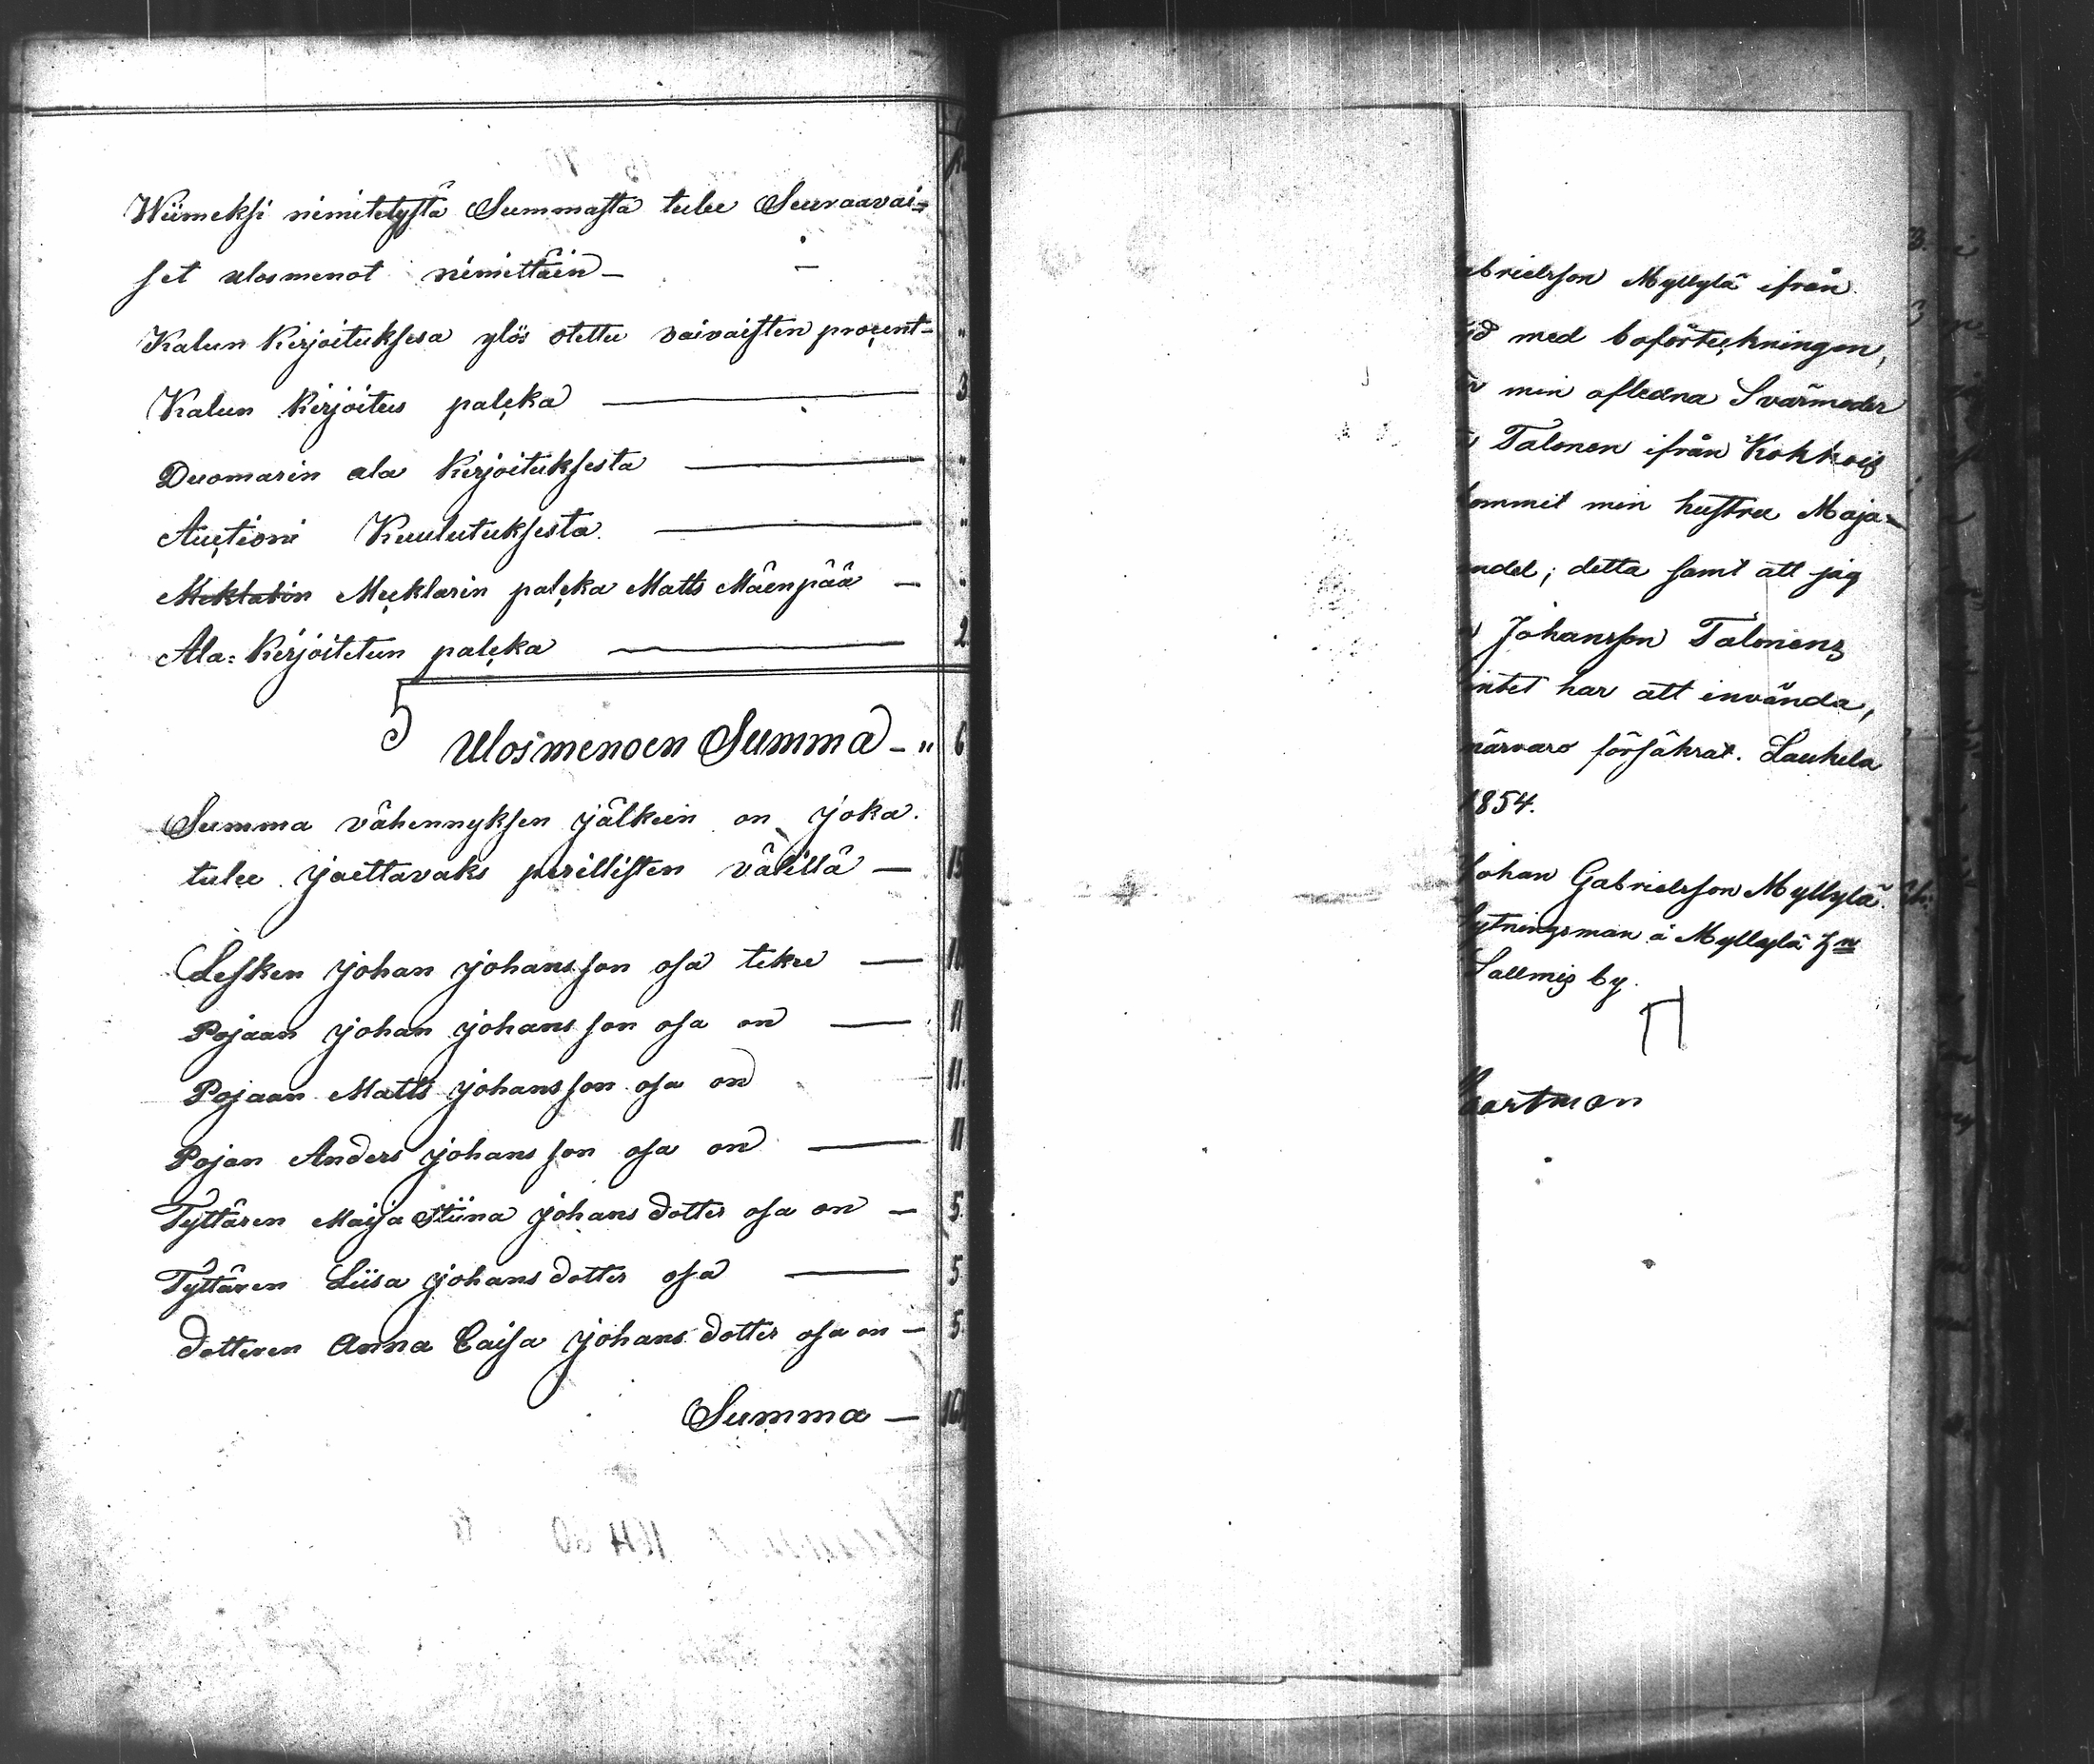 Wiimeksi nimitetystä Summasta tulee Seuraavai=
set ulosmenot nimittäin —
Kalun kirjoituksesa ylös otettu vaivaisten procent —
Kalun kirjoitus palcka — 3
Duomarin ala kirjoituksesta —
Auctioni Kuulutuksesta. —
Mecklarin palcka Matts Mäenpää —
Ala=kirjoitetun palcka — 2
Ulosmenoen Summa — " 6
Summa vähennyksen jälkein on joka.
tulee jaettavaks perillisten välillä — 15
Lesken johan johansson osa tekee —
Pojaan johan johansson osa on — 11
Pojaan Matts johansson osa on 11
Pojan Anders johansson osa on — 11
Tyttären Maija Stiina johans dotter osa on — 5
Tyttären Liisa johans dotter osa — 5
dotteren Anna Caisa johans dotter osa on — 5
Summa —
abrielsson Myllylä ifrån
med boförteckningen,
min afledna Svärmoder
Talonen ifrån Kokkois
ommit min hustru Maja=
andel; detta samt att jag
Johansson Talonens
intet har att invända,
närvaro försäkrat. Lauhela
1854.
Johan Gabrielsson Myllylä.
ytningsman å Myllylä hn
Sallmis by.
artman